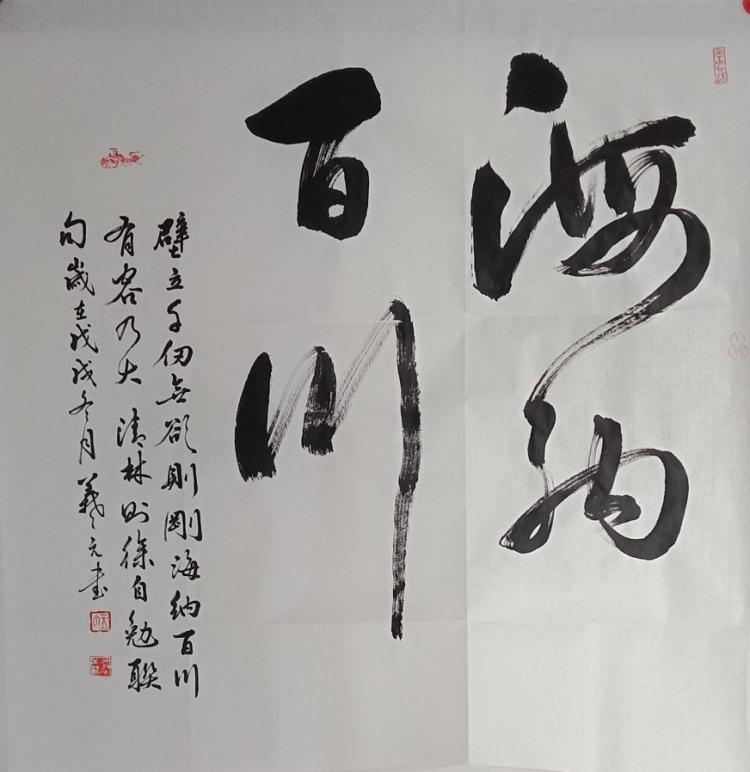 海纳
百川
壁立千仞無欲則剛海纳百川
有容乃大清林则徐自勉聯
句歲在戊戌冬月義元书